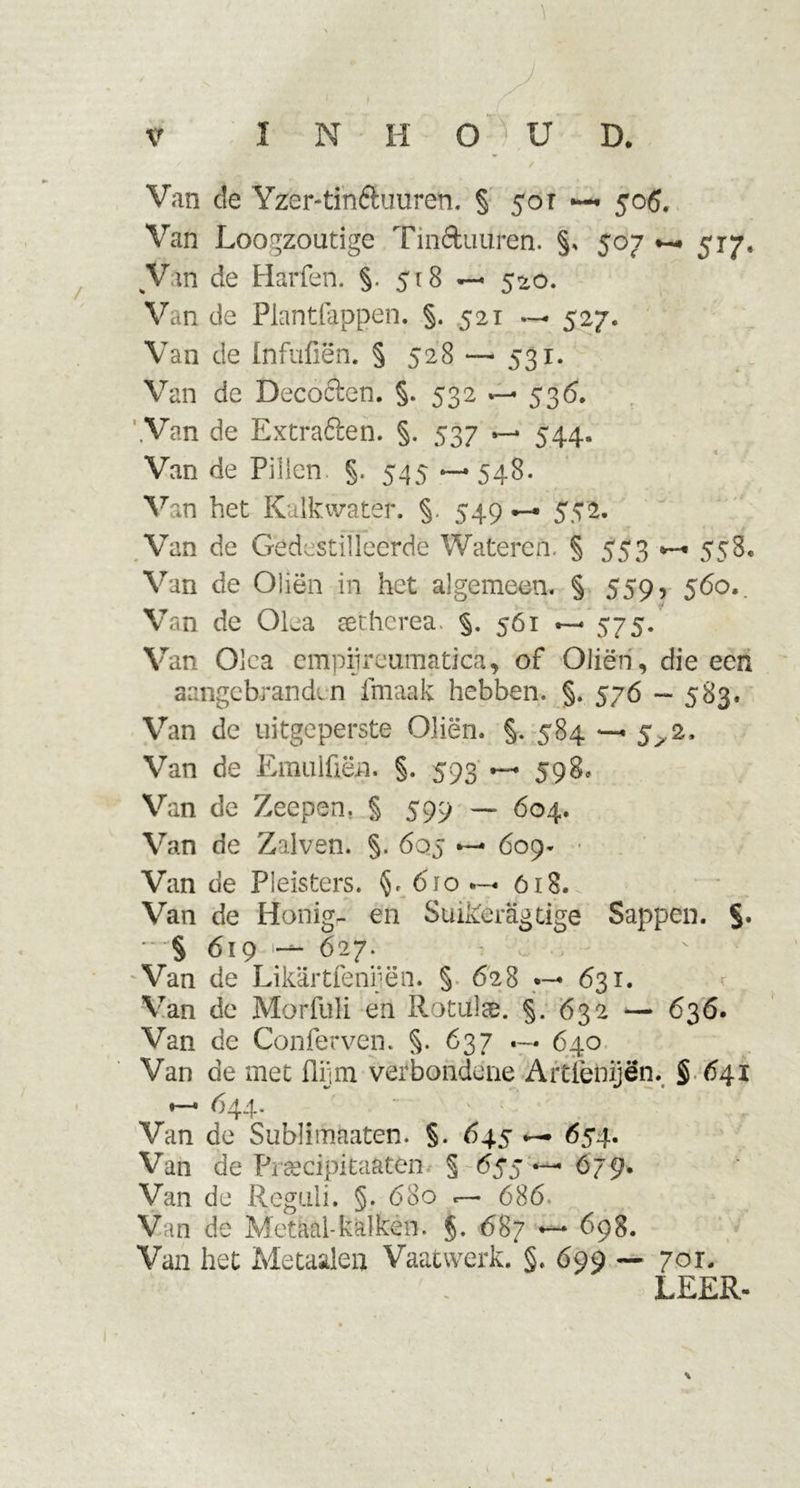 V INHOUD.
Van de Yzer-tinctuuren. § 501 — 506.
Van Loogzoutige Tinctuuren. §. 507 — 517.
Van de Harsen. §. 518 — 520.
Van de Plantsappen. §. 521 — 527.
Van de Infusiën. § 528 — 531.
Van de Decocten. §. 532 — 536.
Van de Extracten. §. 537 — 544.
Van de Pillen. §. 545 — 548.
Van het Kalkwater. §. 549 — 552.
Van de Gedestilleerde Wateren. § 553 — 558.
Van de Oliën in het algemeen. § 559, 560.
Van de Olea ætherea. §. 561 — 575.
Van Olea empijreumatica, of Oliën, die een
aangebranden smaak hebben. §. 576 — 583.
Van de uitgeperste Oliën. §. 584 — 5 2.
Van de Emulsiën. §. 593 — 598.
Van de Zeepen. § 599 — 604.
Van de Zalven. §. 605 — 609.
Van de Pleisters. §. 610 — 618.
Van de Honig- en Suikerägtige Sappen. §.
§ 619 — 627.
Van de Likärtsenijën. § 628 — 631.
Van de Morsuli en Rotulæ. §. 632 — 636.
Van de Conserven. §. 637 — 640
Van de met slijm verbondene Artsenijën. § 641
— 644.
Van de Sublimaaten. §. 645 — 654.
Van de Præcipitaaten § 655 — 679.
Van de Reguli. §. 680 — 686.
Van de Metaal-kalken. §. 687 — 698.
Van het Metaalen Vaatwerk. §. 699 — 701.
LEER-